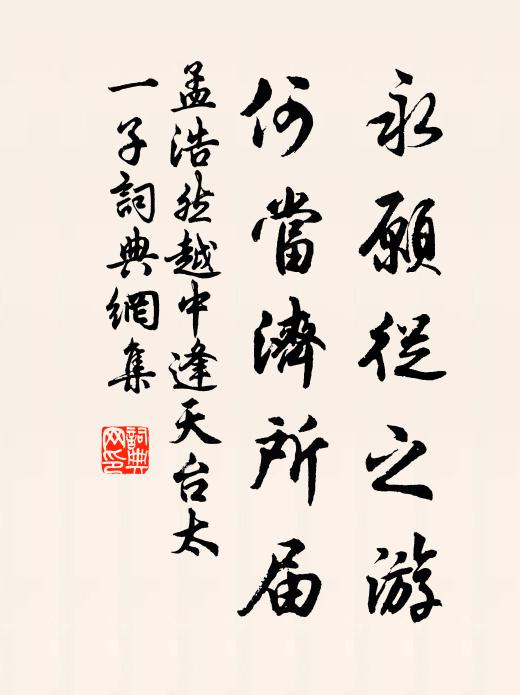 永願從之游
何當濟所届
孟浩然越中逢天台太
一子詞典網集
詞典
网印